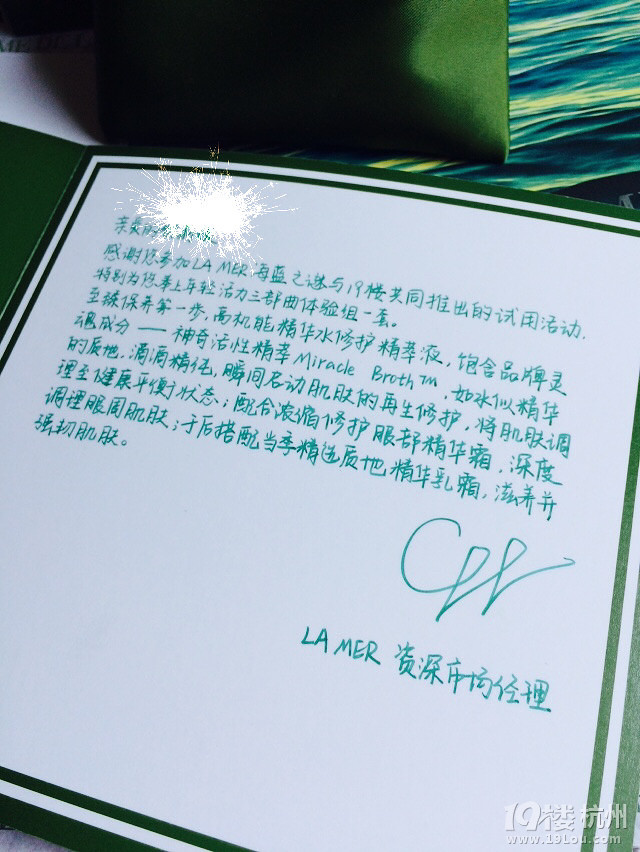 亲爱的
感谢您参加LA MER海蓝之谜与19楼共同推出的试用活动.
特别为您奉上年轻活力三部曲体验组一套。
至臻保养第一步,高机能精华水修护精萃液,饱含品牌灵
魂成分——神奇活性精萃Miracle Broth™,如水似精华
的质地,滴滴精纯,瞬间启动肌肤的再生修护,将肌肤调
理至健康平衡状态;配合浓缩修护眼部精华霜,深度
调理眼周肌肤;于后搭配当季精选质地精华乳霜,滋养并
强韧肌肤。
LA MER 资深市场经理
19楼杭州
www.19lou.com